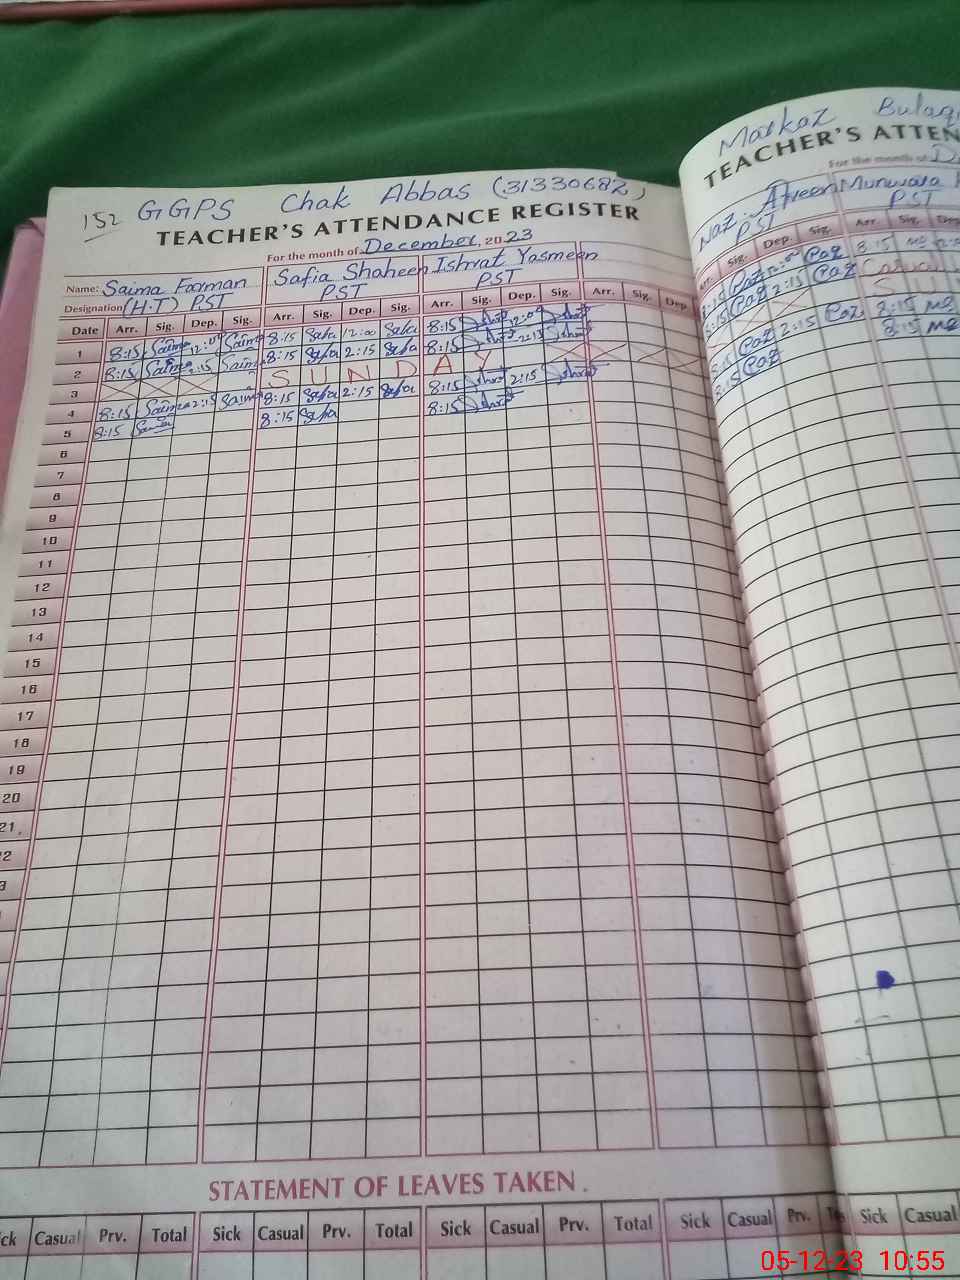 152 GGPS Chak Abbas (31330682)
TEACHER'S ATTENDANCE REGISTER
For the month of December, 2023
Name: Saima Farman Safia Shaheen Ishrat Yasmeen
Designation (H.T) PST PST PST
Date Arr. Sig. Dep. Sig. Arr. Sig. Dep. Sig. Arr. Sig. Dep. Sig. Arr. Sig. Dep.
1 8:15 Saima 12:00 Saima 8:15 Safia 12:00 Safia 8:15 Ishrat 12:00 Ishrat
2 8:15 Saima 2:15 Saima 8:15 Safia 2:15 Safia 8:15 Ishrat 2:15 Ishrat
3 SUNDAY
4 8:15 Saima 2:15 Saima 8:15 Safia 2:15 Safia 8:15 Ishrat 2:15 Ishrat
5 8:15 Saima 8:15 Safia 8:15 Ishrat
6
7
8
9
10
11
12
13
14
15
16
17
18
19
20
21
STATEMENT OF LEAVES TAKEN
Casual Prv. Total Sick Casual Prv. Total Sick Casual Prv. Total Sick Casual Prv.
Markaz
TEACHER'S
For the month of
Naz Afreen Munwara
PST PST
Arr. Sig. Dep. Sig. Arr. Sig.
8:15 12:00 8:15
8:15 2:15 Casual
8:15 2:15 8:15
8:15 8:15
Sick Casual
05-12-23 10:55